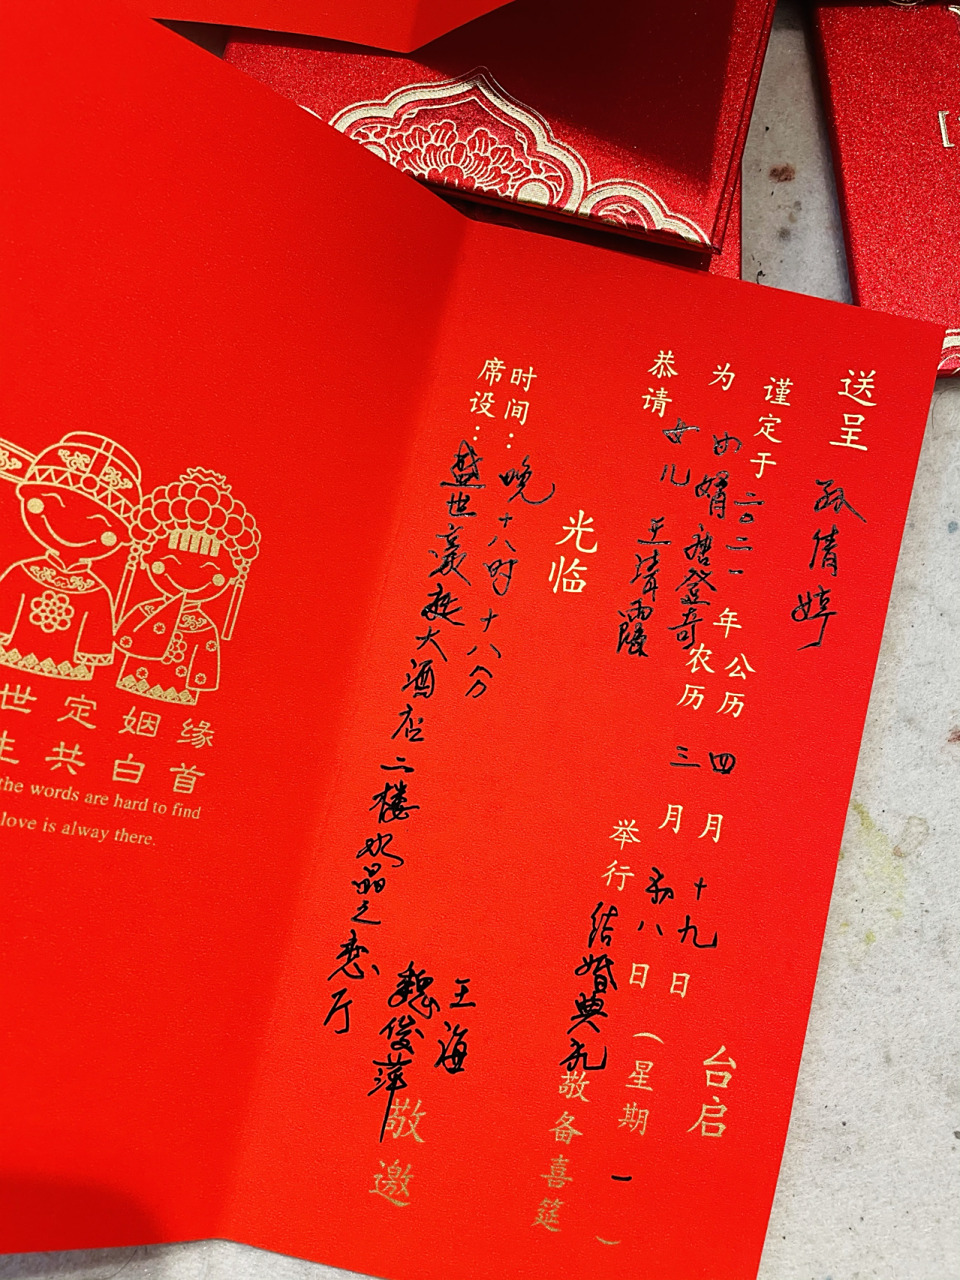 送呈 孙倩婷 台启
谨定于 二〇二一 年 公历 四 月 十九 日
农历 三 月 初八 日 (星期 一 )
为 女婿 唐登奇
女儿 王 举行 结婚典礼 敬备喜筵
恭请
光临
时间: 晚十八时十八分
席设: 盛世豪庭大酒店二楼水晶之恋厅
王海
魏俊萍 敬邀
世定姻缘
生共白首
the words are hard to find
love is alway there.